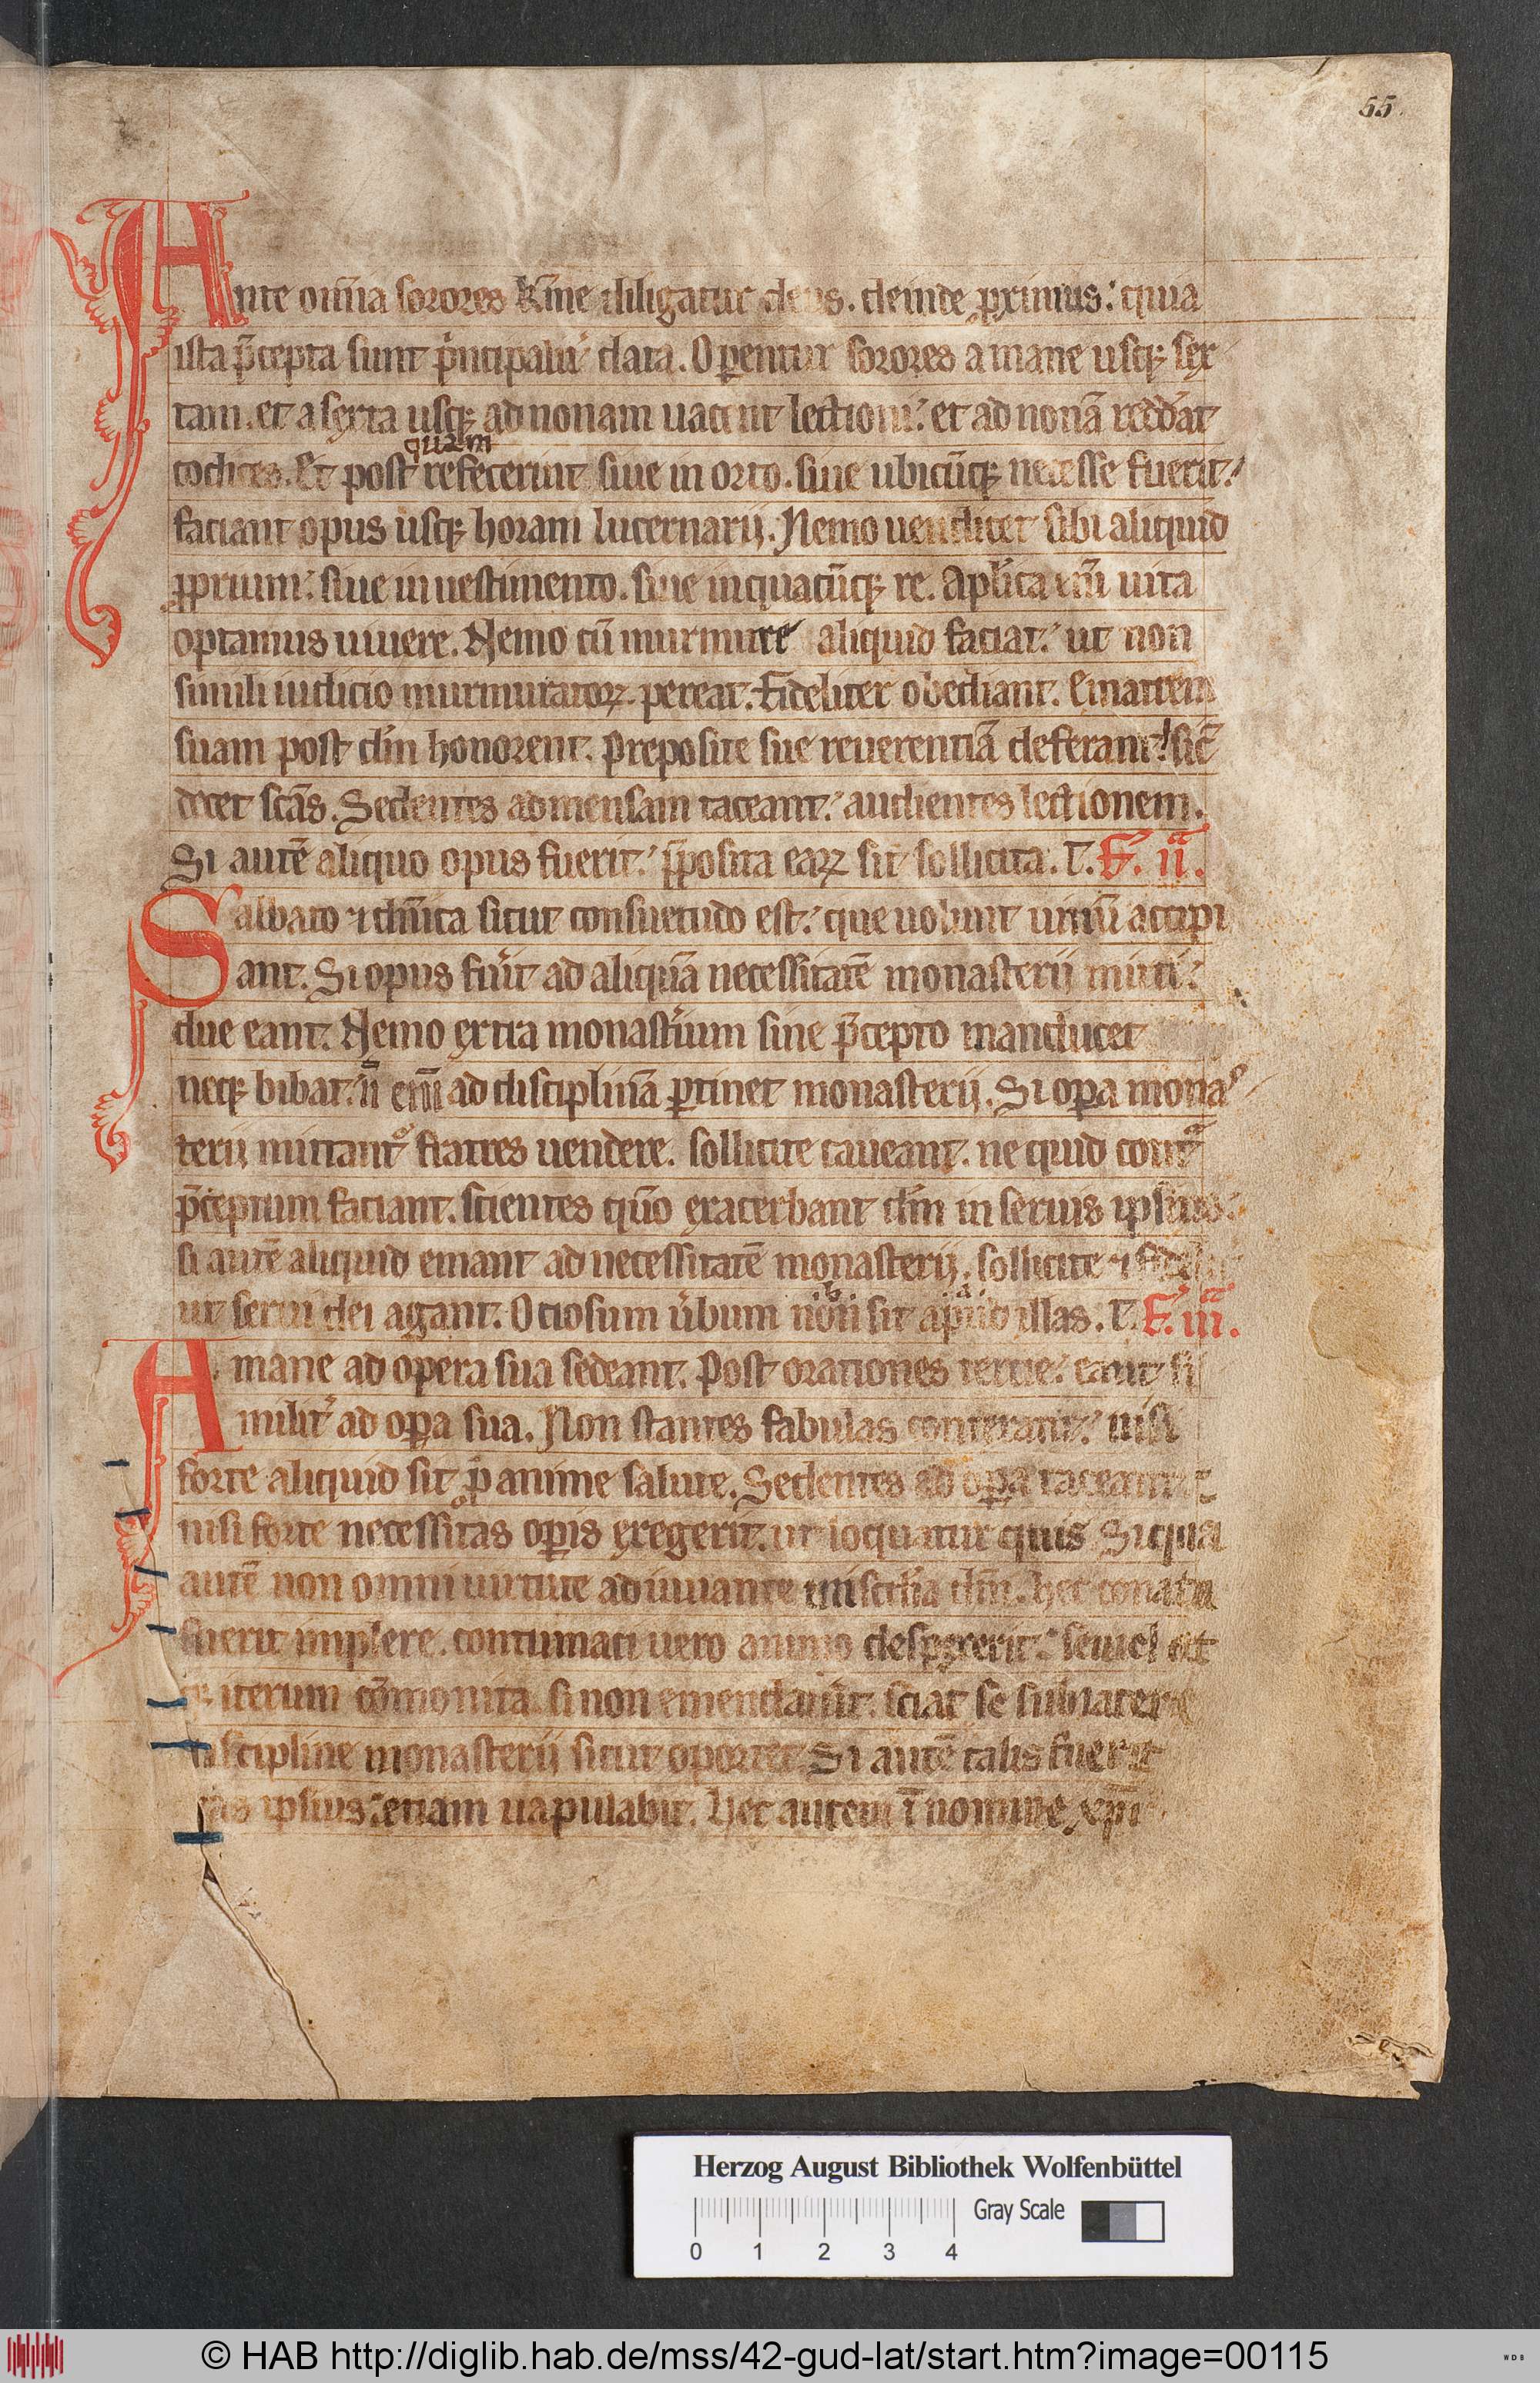 55.
Ante om̄ia sorores k̄me diligatur deus. deinde ꝓximus: quia
ista p̄cepta sunt pͥncipalit᷑ data. Operentur sorores a mane usqꝫ sex
tam. et a sexta usqꝫ ad nonam uacent lectioni: et ad nonā reddāt
quam
codices. Et post refecerint siue in orto. siue ubicūqꝫ necesse fuerit:
faciant opus usqꝫ horam lucernarij. Nemo uendicet sibi aliquid
ꝓprium: siue in uestimento. siue in quacūqꝫ re. Apl̄ica eni̅ uita
optamus uiuere. Nemo cū murmure aliquid faciat: ut non
simili iudicio murmuratoꝝ pereat. Fideliter obediant.
suam post dm̄ honorent. Preposite sue reuerentiā deferant: sic̄
decet sc̄as. Sedentes ad mensam taceant: audientes lectionem.
Si autē aliquo opus fuerit: p̄posita eaꝝ sit sollicita. F. ii.
Sabbato ⁊ dn̄ica sicut consuetudo est: que uolunt uinū accipi
ant. Si opus fuīt ad aliquā necessitatē monasterij miti:
due eant. Nemo extra monastīum sine p̄cepto manducet
neqꝫ bibat: n̄ eni̅ ad disciplinā ꝑtinet monasterij. Si oꝑa mona
terij mittant fratres uendere. sollicite caueant. ne quid contᷓ
p̄ceptum faciant. scientes qūo exacerbant dm̄ in seruis ipsius:
si autē aliquid emant ad necessitatē monasterij. sollicite ⁊
ut serui dei agant. Otiosum ūbum non sit apud illas. F. iii.
A mane ad opera sua sedeant. Post orationes tertie: eant si
milit᷑ ad oꝑa sua. Non stantes fabulas conterant: nisi
forte aliquid sit p̄ anime salute. Sedentes ad oꝑa taceant:
nisi forte necessitas oꝑis exegerit. ut loquatur quis Si qua
autē non omni uirtute adiuuante mis̄cdia dm̄. hec conata
fuerit implere. contumaci uero animo despexerit: semel at
qꝫ iterum cōmonita si non emendaūit. sciat se subiacere
discipline monasterij sicut oportet. Si autē talis fuerit
tas ipsius: etiam uapulabit. Hec autem ī nomine xp̄i
Herzog August Bibliothek Wolfenbüttel
0 1 2 3 4 Gray Scale
© HAB http://diglib.hab.de/mss/42-gud-lat/start.htm?image=00115
WDB